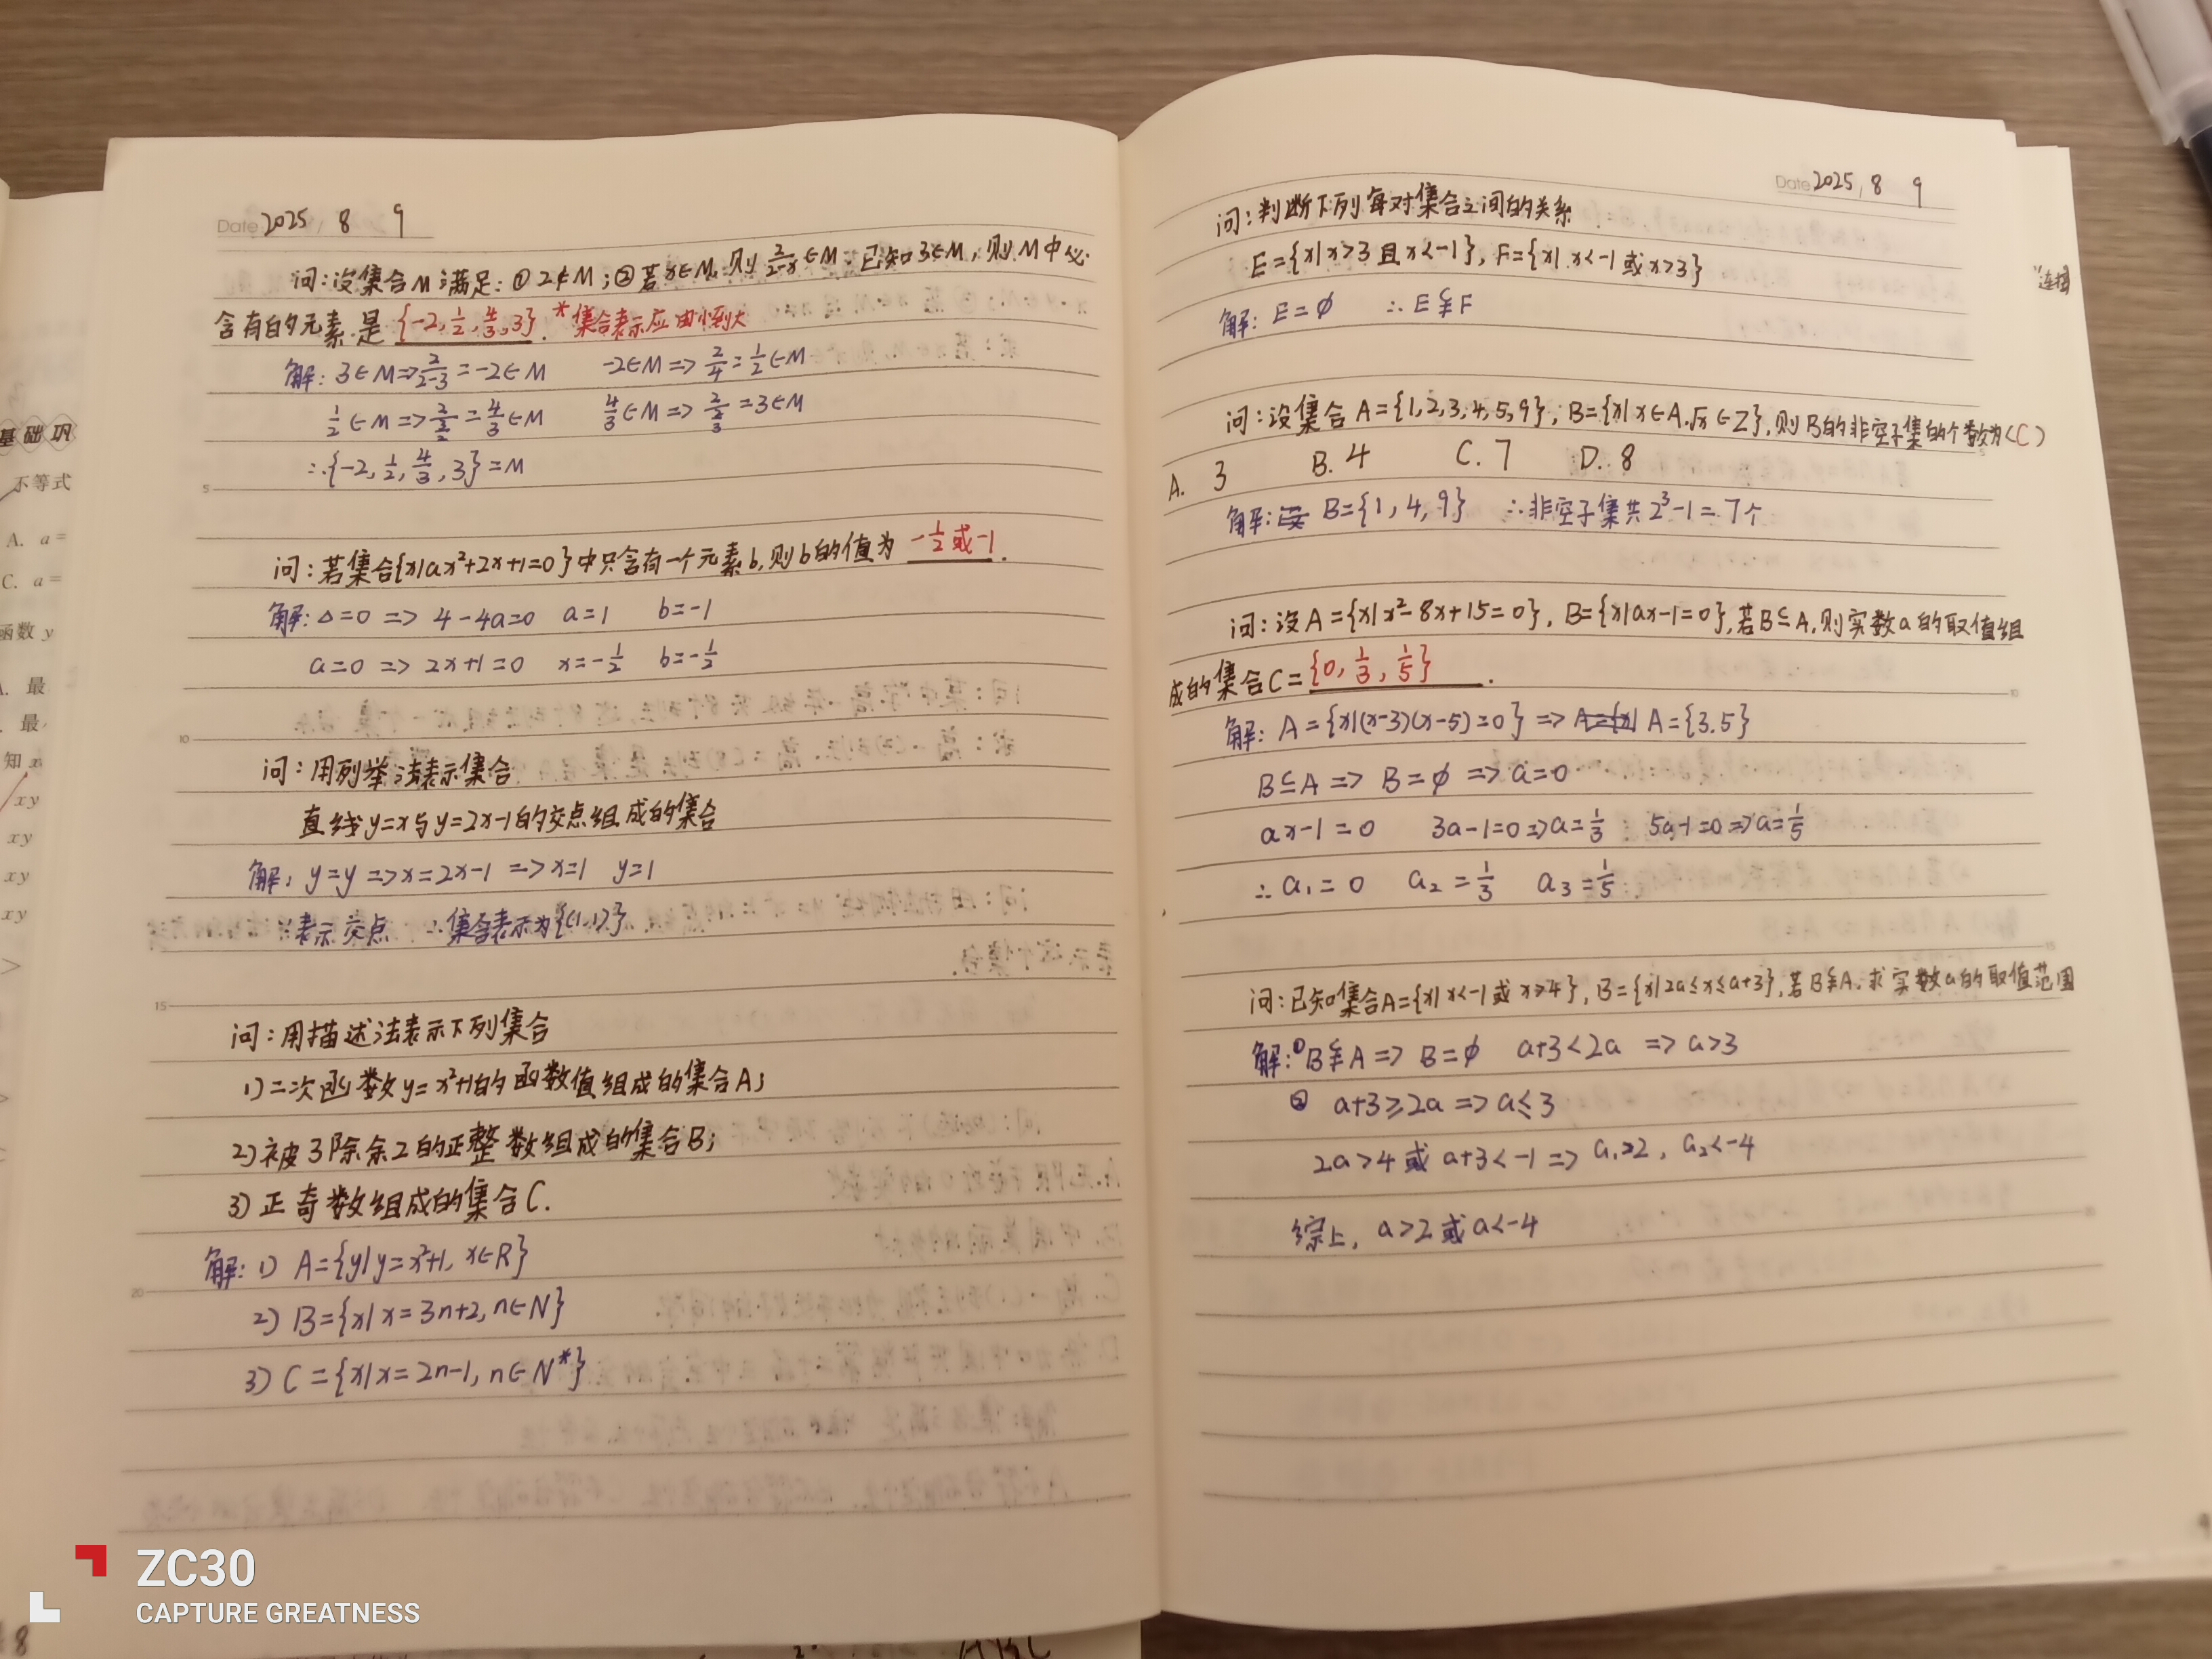 Date 2025 / 8 9
问:设集合M满足:①2∉M;②若x∈M,则2/(2-x)∈M.已知3∈M,则M中必
含有的元素是{-2,1/2,4/3,3}. *集合表示应由小到大
解:3∈M=>2/(2-3)=-2∈M -2∈M=>2/4=1/2∈M
1/2∈M=>2/(3/2)=4/3∈M 4/3∈M=>2/(2/3)=3∈M
∴{-2,1/2,4/3,3}=M
5
问:若集合{x|ax²+2x+1=0}中只含有一个元素b,则b的值为 -1/2或-1.
解:Δ=0 => 4-4a=0 a=1 b=-1
a=0 => 2x+1=0 x=-1/2 b=-1/2
10
问:用列举法表示集合
直线y=x与y=2x-1的交点组成的集合
解:y=y=>x=2x-1 =>x=1 y=1
∵表示交点 ∴集合表示为{(1,1)}
15
问:用描述法表示下列集合
1)二次函数y=x²+1的函数值组成的集合A;
2)被3除余2的正整数组成的集合B;
3)正奇数组成的集合C.
解:1) A={y|y=x²+1, x∈R}
20
2) B={x|x=3n+2,n∈N}
3) C={x|x=2n-1, n∈N*}
Date 2025 / 8 9
问:判断下列每对集合之间的关系
E={x|x>3且x<-1}, F={x|x<-1或x>3}
解:E=∅ ∴E⫋F
问:设集合A={1,2,3,4,5,9}, B={x|x∈A,√x∈Z},则B的非空子集的个数为(C)
A. 3 B. 4 C. 7 D. 8
解: B={1,4,9} ∴非空子集共2³-1=7个
问:设A={x|x²-8x+15=0}, B={x|ax-1=0},若B⊆A,则实数a的取值组
成的集合C={0,1/3,1/5}.
10
解:A={x|(x-3)(x-5)=0} => A={x| A={3.5}
B⊆A => B=∅ => a=0
ax-1=0 3a-1=0=>a=1/3 ; 5a-1=0=>a=1/5
∴a₁=0 a₂=1/3 a₃=1/5
15
问:已知集合A={x|x<-1或x≥4}, B={x|2a≤x≤a+3},若B⫋A,求实数a的取值范围
解:①B⫋A => B=∅ a+3<2a => a>3
② a+3≥2a => a≤3
2a>4或a+3<-1 => a₁≥2, a₂<-4
综上, a>2或a<-4
连接
基础巩
不等式
A. a=
C. a=
函数y
最
最
知x
xy
xy
xy
xy
>
8
ZC30
CAPTURE GREATNESS